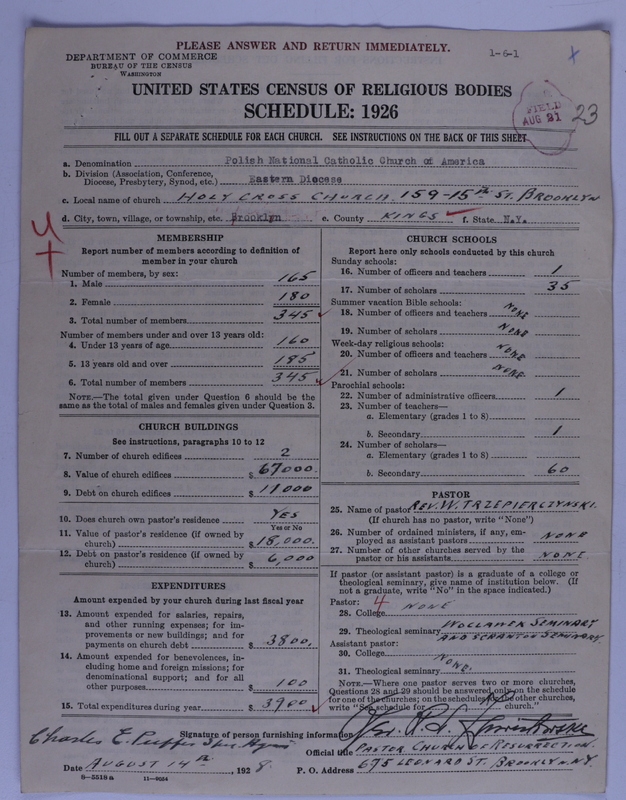 PLEASE ANSWER AND RETURN IMMEDIATELY.
1-6-1
DEPARTMENT OF COMMERCE
BUREAU OF THE CENSUS
WASHINGTON
UNITED STATES CENSUS OF RELIGIOUS BODIES
SCHEDULE: 1926
FIELD
AUG 21
23
FILL OUT A SEPARATE SCHEDULE FOR EACH CHURCH. SEE INSTRUCTIONS ON THE BACK OF THIS SHEET
a. Denomination Polish National Catholic Church of America
b. Division (Association, Conference,
Diocese, Presbytery, Synod, etc.) Eastern Diocese
c. Local name of church HOLY CROSS CHURCH. 159-15th ST. BROOKLYN
d. City, town, village, or township, etc. Brooklyn e. County KINGS f. State N.Y.
MEMBERSHIP
Report number of members according to definition of
member in your church
Number of members, by sex:
1. Male 165
2. Female 180
3. Total number of members 345
Number of members under and over 13 years old:
4. Under 13 years of age 160
5. 13 years old and over 185
6. Total number of members 345
NOTE.—The total given under Question 6 should be the
same as the total of males and females given under Question 3.
CHURCH BUILDINGS
See instructions, paragraphs 10 to 12
7. Number of church edifices 2
8. Value of church edifices $67000.
9. Debt on church edifices $ 17000
10. Does church own pastor's residence YES
Yes or No
11. Value of pastor's residence (if owned by
church) $18,000.
12. Debt on pastor's residence (if owned by
church) $ 6,000
EXPENDITURES
Amount expended by your church during last fiscal year
13. Amount expended for salaries, repairs,
and other running expenses; for im-
provements or new buildings; and for
payments on church debt $ 3800.
14. Amount expended for benevolences, in-
cluding home and foreign missions; for
denominational support; and for all
other purposes $ 100
15. Total expenditures during year $ 3900
CHURCH SCHOOLS
Report here only schools conducted by this church
Sunday schools:
16. Number of officers and teachers 1
17. Number of scholars 35
Summer vacation Bible schools:
18. Number of officers and teachers NONE
19. Number of scholars NONE
Week-day religious schools:
20. Number of officers and teachers NONE
21. Number of scholars NONE
Parochial schools:
22. Number of administrative officers 1
23. Number of teachers—
a. Elementary (grades 1 to 8)
b. Secondary 1
24. Number of scholars—
a. Elementary (grades 1 to 8)
b. Secondary 60
PASTOR
25. Name of pastor REV. W. TRZEPIERCZYNSKI.
(If church has no pastor, write "None")
26. Number of ordained ministers, if any, em-
ployed as assistant pastors NONE
27. Number of other churches served by the
pastor or his assistants NONE
If pastor (or assistant pastor) is a graduate of a college or
theological seminary, give name of institution below. (If
not a graduate, write "No" in the space indicated.)
Pastor: 4
28. College NONE
29. Theological seminary WOCLAWEK SEMINARY
AND SCRANTON SEMINARY
Assistant pastor:
30. College NONE.
31. Theological seminary
NOTE.—Where one pastor serves two or more churches,
Questions 28 and 29 should be answered only on the schedule
for one of the churches; on the schedules for the other churches,
write "See schedule for church."
Signature of person furnishing information Rev.
Charles E. Puffer
Official title PASTOR CHURCH OF RESURRECTION.
Date AUGUST 14th, 1928. P. O. Address 675 LEONARD ST. BROOKLYN. N.Y.
8-5518a 11-9054